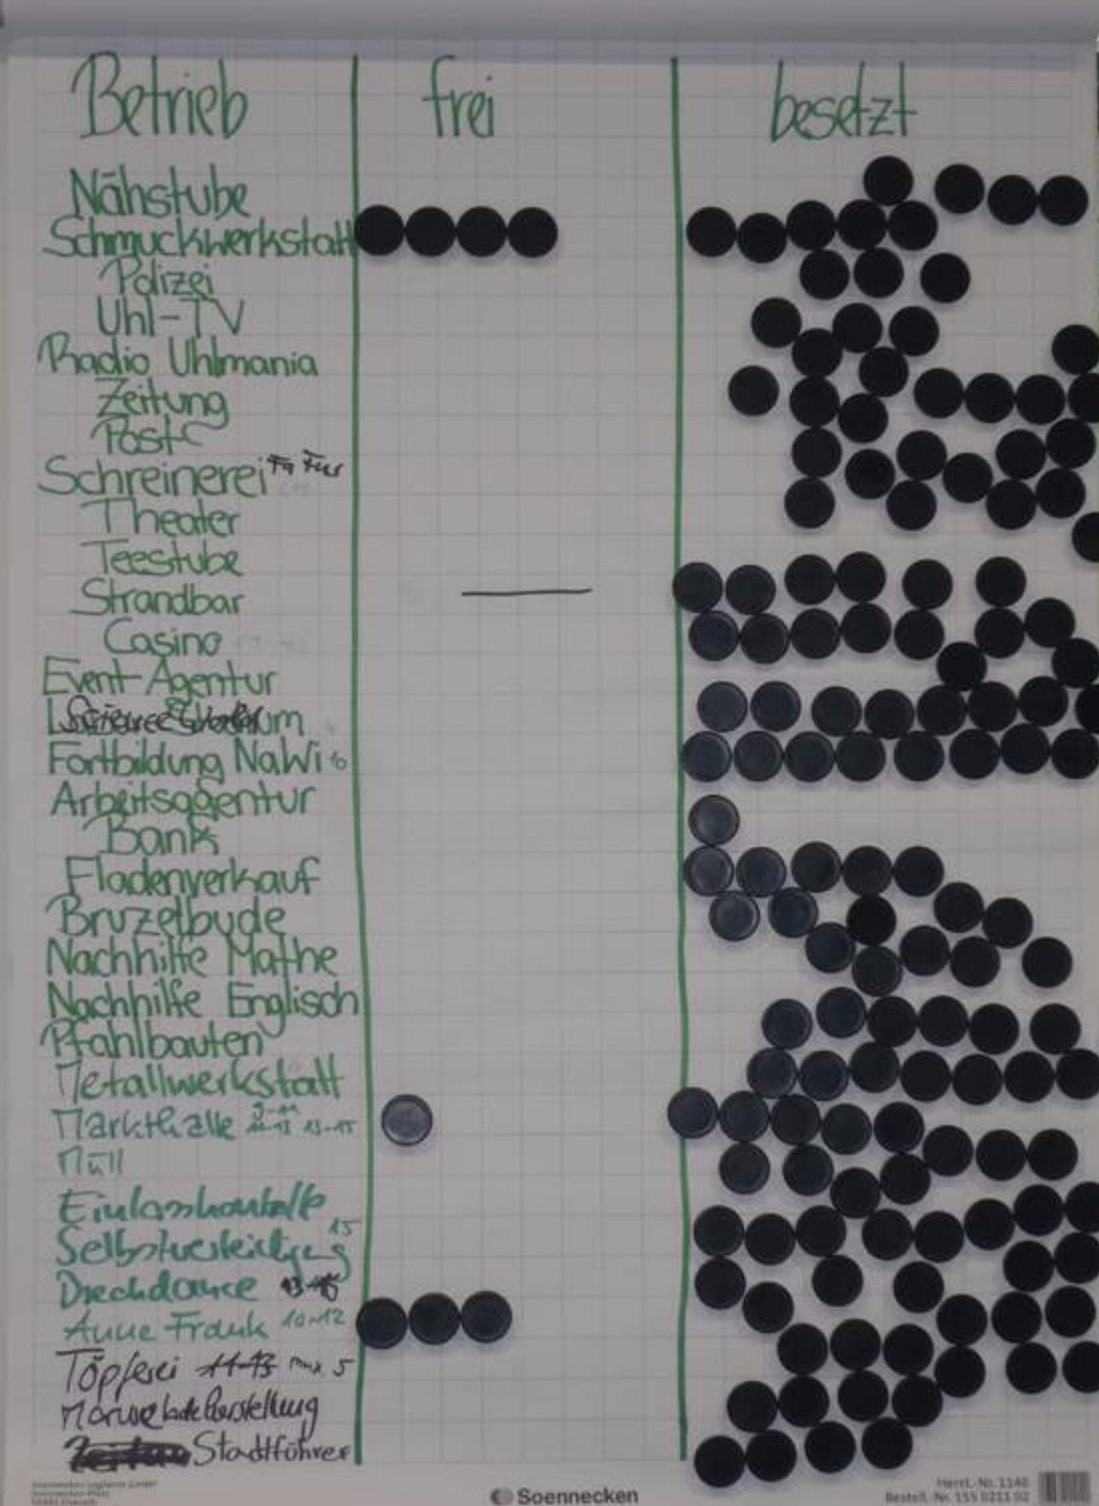 Betrieb frei besetzt
Nähstube
Schmuckwerkstatt
Polizei
Uhl-TV
Radio Uhlmania
Zeitung
Post
Schreinerei
Theater
Teestube
Strandbar
Casino
Event-Agentur
Fortbildung NaWi 10
Arbeitsagentur
Bank
Fladenverkauf
Bruzelbude
Nachhilfe Mathe
Nachhilfe Englisch
Pfahlbauten
Metallwerkstatt
Markthalle 9-11 11-13 13-15
Müll
Einlasskontrolle
Selbstverteidigung 15
Anne Frank 10-12
Töpferei 11-13 max 5
Marmeladeherstellung
Stadtführer
Soennecken
Herst.-Nr. 1140
Bestell.-Nr. 155 0211 02